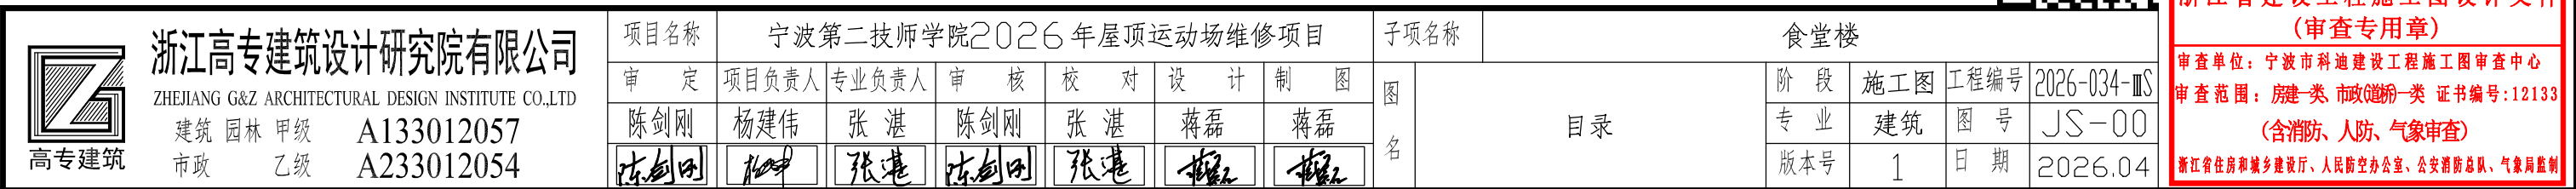 浙江高专建筑设计研究院有限公司
ZHEJIANG G&Z ARCHITECTURAL DESIGN INSTITUTE CO.,LTD
建筑 园林 甲级 A133012057
市政 乙级 A233012054
高专建筑
项目名称 宁波第二技师学院2026年屋顶运动场维修项目 子项名称 食堂楼
审 定 项目负责人 专业负责人 审 核 校 对 设 计 制 图
陈剑刚 杨建伟 张 湛 陈剑刚 张 湛 蒋磊 蒋磊
陈剑刚 张湛 陈剑刚 张湛 蒋磊 蒋磊
图名 目录
阶 段 施工图 工程编号 2026-034-ⅢS
专 业 建筑 图 号 JS-00
版本号 1 日 期 2026.04
(审查专用章)
审查单位：宁波市科迪建设工程施工图审查中心
审查范围：房建一类、市政(道桥)一类 证书编号:12133
(含消防、人防、气象审查)
浙江省住房和城乡建设厅、人民防空办公室、公安消防总队、气象局监制